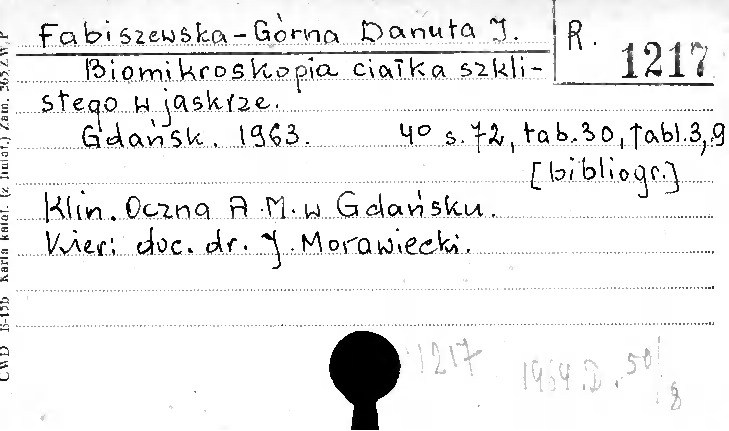 Fabiszewska-Górna Danuta J.
R. 1217
Biomikroskopia ciałka szkli-
stego w jaskrze.
Gdańsk. 1963. 4° s. 72, tab. 30, tabl. 3, 9
[bibliogr.]
Klin. Oczna A.M. w Gdańsku.
Kier: doc. dr. J. Morawiecki.
1217
1964.D. 50/8
CWD B-15b Karta katal. (z hulat.) Zam. 365 Z.W.P